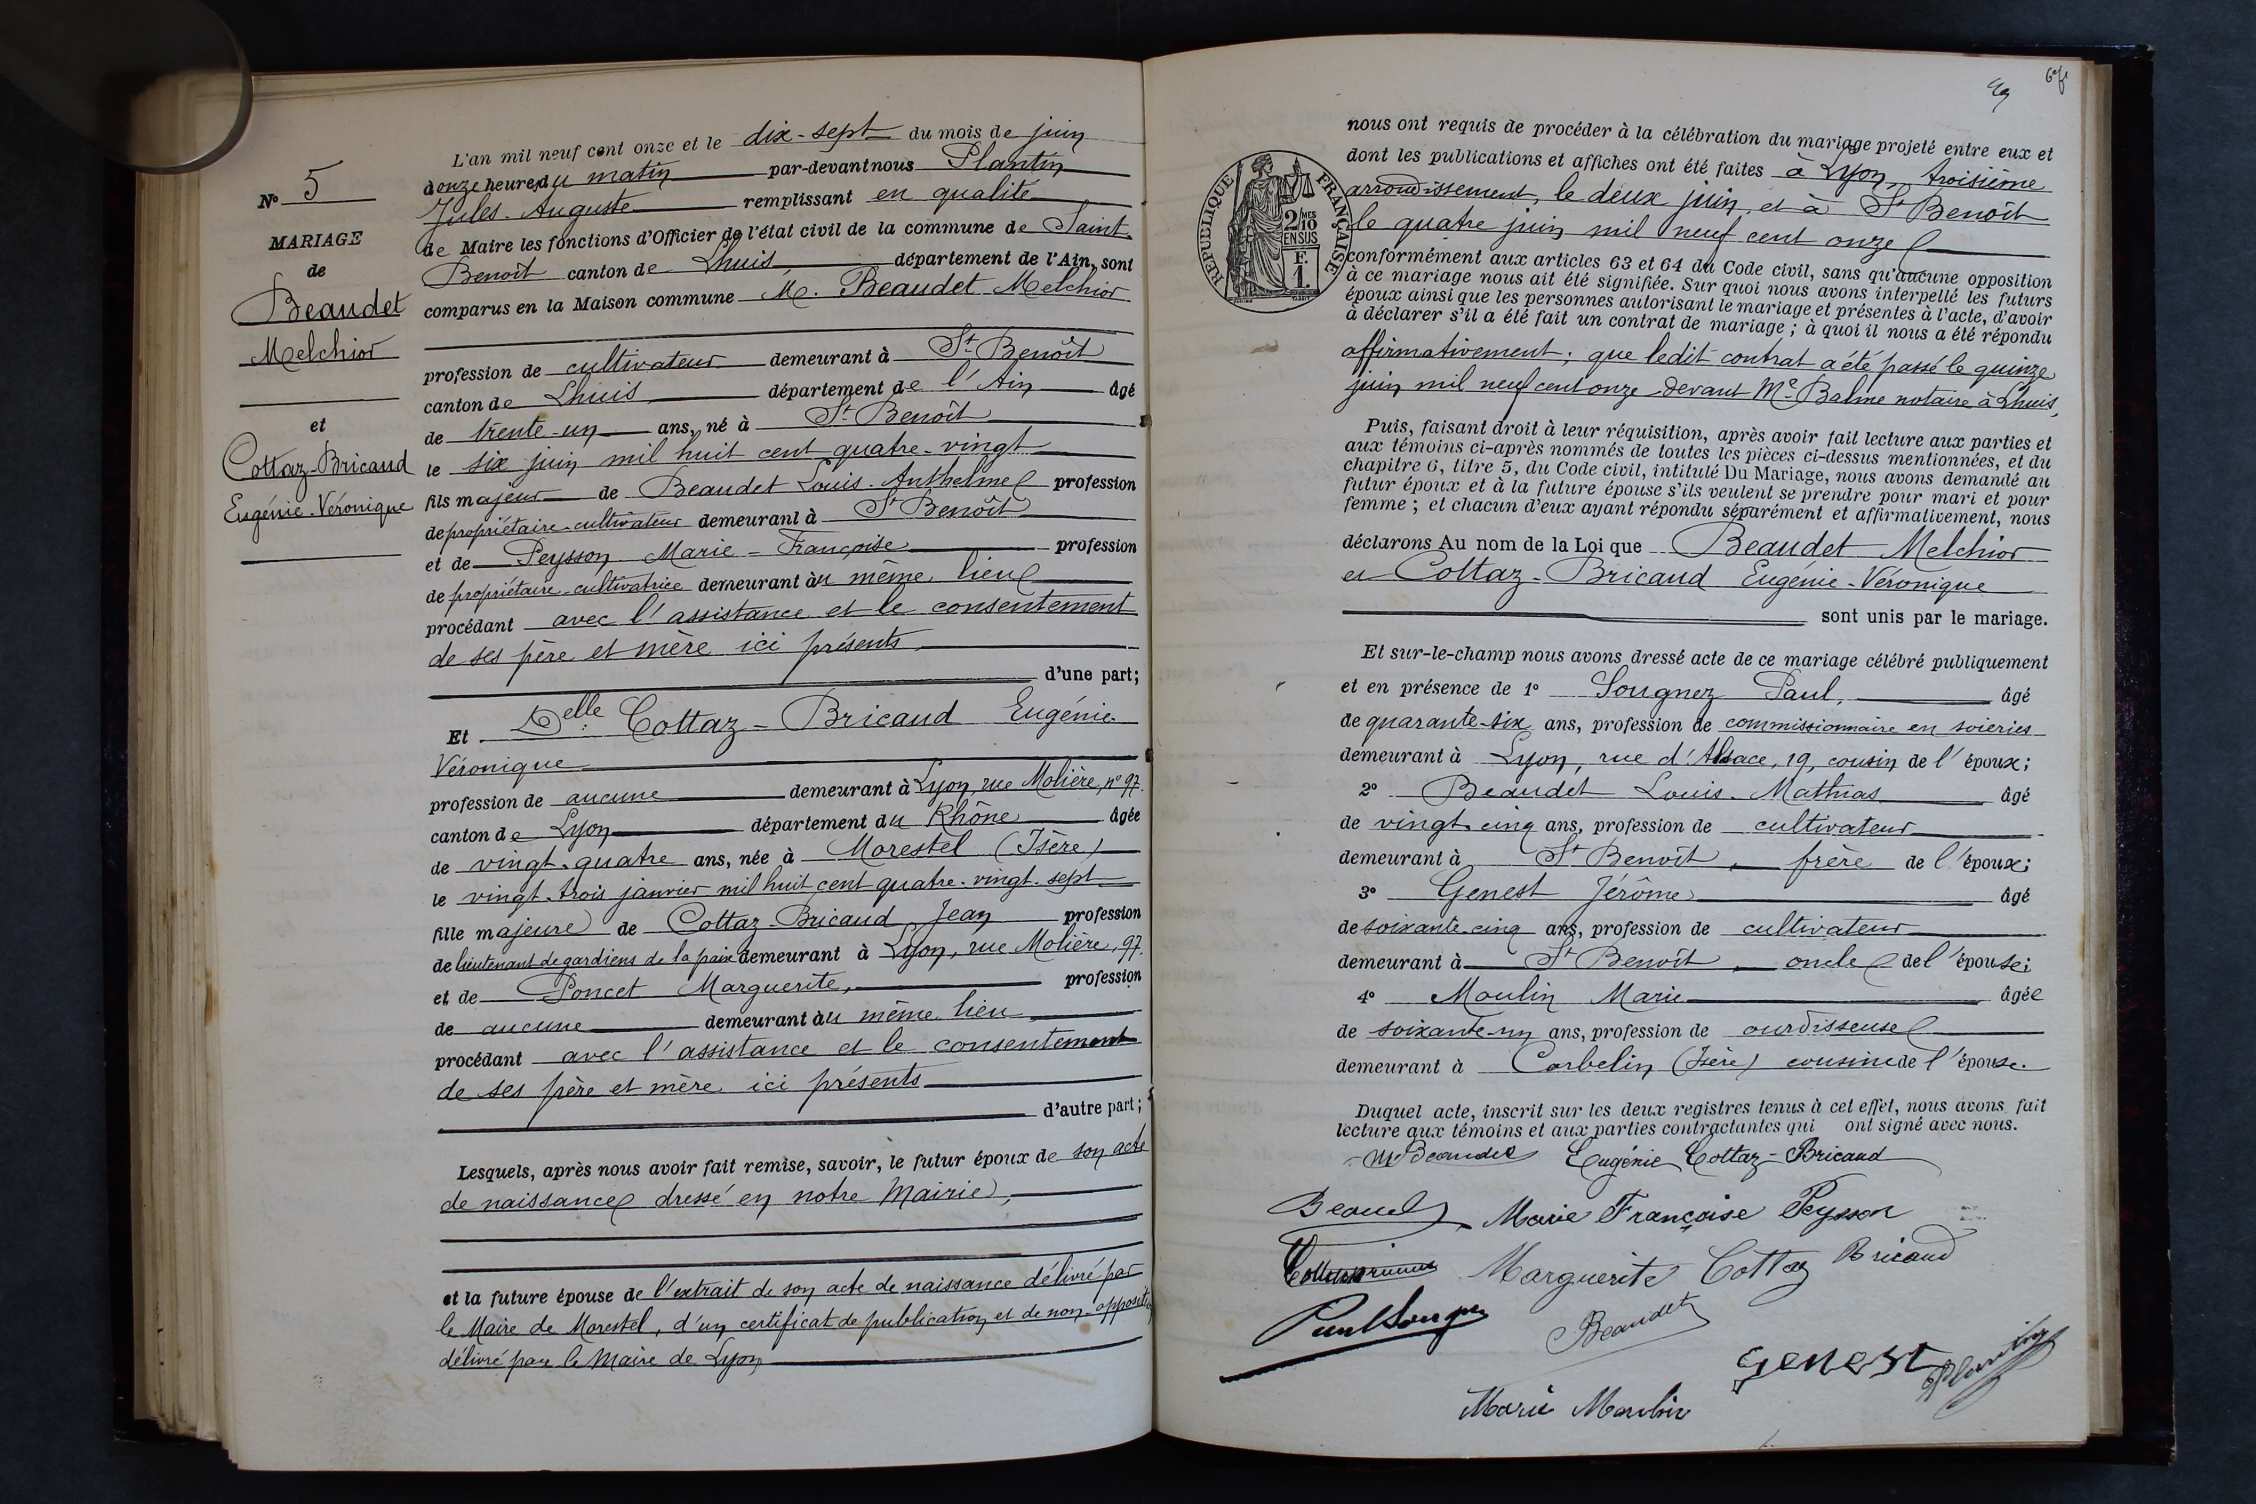 N° 5
MARIAGE
de
Beaudet
Melchior
et
Cottaz-Bricaud
Eugénie-Véronique
L'an mil neuf cent onze et le dix-sept du mois de juin
à onze heures du matin par-devant nous Plantin
Jules-Auguste remplissant en qualité
de Maire les fonctions d'Officier de l'état civil de la commune de Saint-
Benoît canton de Lhuis département de l'Ain, sont
comparus en la Maison commune M. Beaudet Melchior
profession de cultivateur demeurant à St Benoît
canton de Lhuis département de l'Ain âgé
de trente-un ans, né à St Benoît
le six juin mil huit cent quatre-vingt
fils majeur de Beaudet Louis-Anthelme profession
de propriétaire-cultivateur demeurant à St Benoît
et de Peysson Marie-Françoise profession
de propriétaire-cultivatrice demeurant au même lieu
procédant avec l'assistance et le consentement
de ses père et mère ici présents
d'une part;
Et Delle Cottaz-Bricaud Eugénie-
Véronique
profession de aucune demeurant à Lyon, rue Molière, n° 97.
canton de Lyon département du Rhône âgée
de vingt-quatre ans, née à Morestel (Isère)
le vingt-trois janvier mil huit cent quatre-vingt-sept
fille majeure de Cottaz-Bricaud Jean profession
de lieutenant de gardiens de la paix demeurant à Lyon, rue Molière, 97.
et de Poncet Marguerite, profession
de aucune demeurant au même lieu
procédant avec l'assistance et le consentement
de ses père et mère ici présents
d'autre part;
Lesquels, après nous avoir fait remise, savoir, le futur époux de son acte
de naissance dressé en notre Mairie,
et la future épouse de l'extrait de son acte de naissance délivré par
le Maire de Morestel, d'un certificat de publication et de non-opposition
délivré par le Maire de Lyon
RÉPUBLIQUE FRANÇAISE
2/10 MES
EN SUS
F.
1
nous ont requis de procéder à la célébration du mariage projeté entre eux et
dont les publications et affiches ont été faites à Lyon, troisième
arrondissement, le deux juin, et à St Benoît
le quatre juin mil neuf cent onze
conformément aux articles 63 et 64 du Code civil, sans qu'aucune opposition
à ce mariage nous ait été signifiée. Sur quoi nous avons interpellé les futurs
époux ainsi que les personnes autorisant le mariage et présentes à l'acte, d'avoir
à déclarer s'il a été fait un contrat de mariage; à quoi il nous a été répondu
affirmativement; que ledit contrat a été passé le quinze
juin mil neuf cent onze devant Me Balme notaire à Lhuis,
Puis, faisant droit à leur réquisition, après avoir fait lecture aux parties et
aux témoins ci-après nommés de toutes les pièces ci-dessus mentionnées, et du
chapitre 6, titre 5, du Code civil, intitulé Du Mariage, nous avons demandé au
futur époux et à la future épouse s'ils veulent se prendre pour mari et pour
femme; et chacun d'eux ayant répondu séparément et affirmativement, nous
déclarons Au nom de la Loi que Beaudet Melchior
et Cottaz-Bricaud Eugénie-Véronique
sont unis par le mariage.
Et sur-le-champ nous avons dressé acte de ce mariage célébré publiquement
et en présence de 1° Sougnez Paul, âgé
de quarante-six ans, profession de commissionnaire en soieries
demeurant à Lyon, rue d'Alsace, 19, cousin de l'époux;
2° Beaudet Louis-Mathias âgé
de vingt-cinq ans, profession de cultivateur
demeurant à St Benoît, frère de l'époux;
3° Genest Jérôme âgé
de soixante-cinq ans, profession de cultivateur
demeurant à St Benoît, oncle de l'épouse;
4° Moulin Marie âgée
de soixante-un ans, profession de ourdisseuse
demeurant à Corbelin (Isère) cousine de l'épouse.
Duquel acte, inscrit sur les deux registres tenus à cet effet, nous avons fait
lecture aux témoins et aux parties contractantes qui ont signé avec nous.
M Beaudet Eugénie Cottaz-Bricaud
Beaudet Marie Françoise Peysson
Marguerite Cottaz Bricaud
Paul Sougnez
Beaudet
Genest Plantin
Marie Moulin